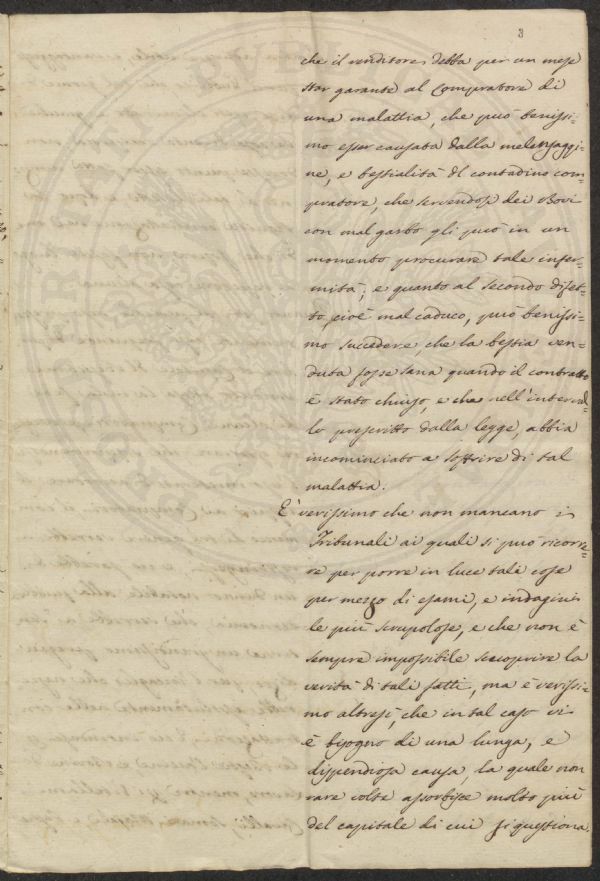 3
che il venditore, debba per un mese
star garante al Compratore di
una malattia, che può benissi=
mo esser causata dalla melensaggi=
ne, e bestialità del contadino com=
pratore, che servendosi dei Bovi
con mal garbo gli può in un
momento procurare tale infer=
mità, e quanto al secondo difet=
to, cioè mal caduco, può benissi=
mo succedere, che la bestia ven=
duta fosse sana quando il contratto
è stato chiuso, e che nell'interval=
lo prescritto dalla legge, abbia
incominciato a soffrire di tal
malattia.
E' verissimo che non mancano i
Tribunali ai quali si può ricorre=
re per porre in luce tali cose
per mezzo di esami, e indagini
le più scrupolose, e che non è
sempre impossibile scuoprire la
verità di tali fatti, ma è verissi=
mo altresì, che in tal caso vi
è bisogno di una lunga, e
dispendiosa causa, la quale non
rare volte assorbisce molto più
del capitale di cui si questiona.